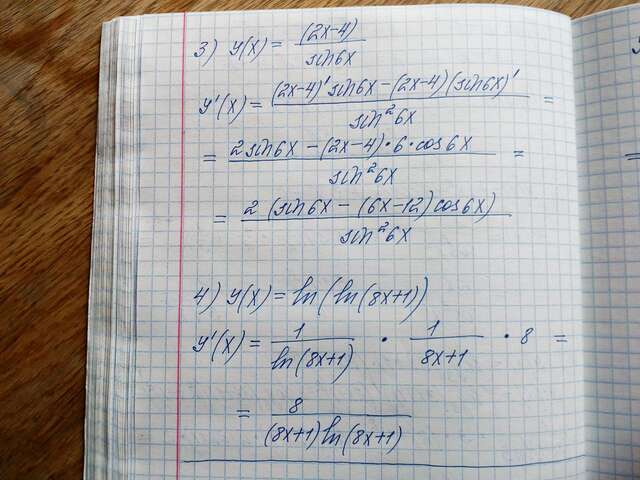 3) y(x) = (2x-4) / sin6x
y'(x) = ((2x-4)' sin6x - (2x-4)(sin6x)') / sin²6x =
= (2sin6x - (2x-4)•6•cos6x) / sin²6x =
= 2(sin6x - (6x-12)cos6x) / sin²6x
4) y(x) = ln(ln(8x+1))
y'(x) = 1 / ln(8x+1) • 1 / 8x+1 • 8 =
= 8 / (8x+1)ln(8x+1)